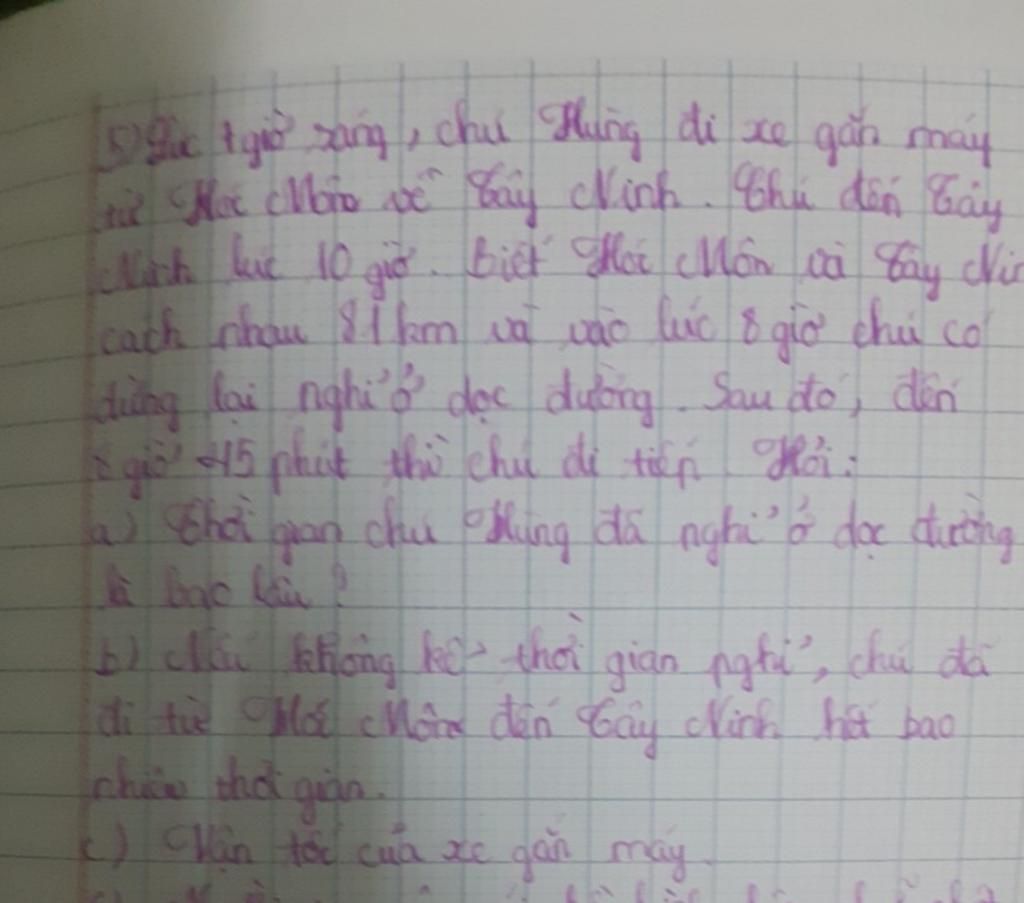 5) Lúc 7 giờ sáng, chú Hùng đi xe gắn máy
từ Hóc Môn về Tây Ninh. Chú đến Tây
Ninh lúc 10 giờ. Biết Hóc Môn và Tây Nin
cách nhau 81 km và vào lúc 8 giờ chú có
dừng lại nghỉ ở dọc đường. Sau đó, đến
8 giờ 45 phút thì chú đi tiếp. Hỏi:
a) Thời gian chú Hùng đã nghỉ ở dọc đường
là bao lâu?
b) Nếu không kể thời gian nghỉ, chú đã
đi từ Hóc Môn đến Tây Ninh hết bao
nhiêu thời gian.
c) Vận tốc của xe gắn máy.